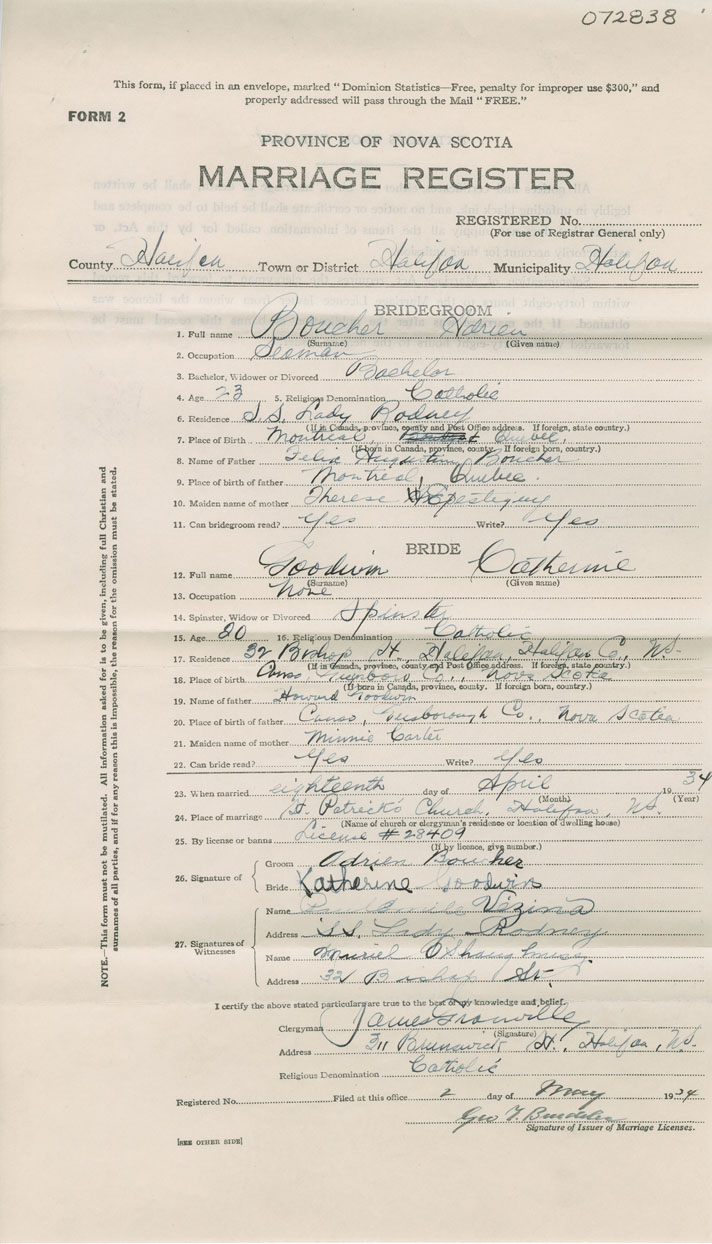 072838
This form, if placed in an envelope, marked "Dominion Statistics—Free, penalty for improper use $300," and
properly addressed will pass through the Mail "FREE."
FORM 2
PROVINCE OF NOVA SCOTIA
MARRIAGE REGISTER
REGISTERED No.
(For use of Registrar General only)
County Halifax Town or District Halifax Municipality Halifax
BRIDEGROOM
1. Full name Boucher Adrien
(Surname) (Given name)
2. Occupation Seaman
3. Bachelor, Widower or Divorced Bachelor
4. Age 23 5. Religious Denomination Catholic
6. Residence S.S. Lady Rodney
(If in Canada, province, county and Post Office address. If foreign, state country.)
7. Place of Birth Montreal, Quebec,
(If born in Canada, province, county. If foreign born, country.)
8. Name of Father Felix Augustin Boucher
9. Place of birth of father Montreal, Quebec.
10. Maiden name of mother Therese
11. Can bridegroom read? Yes Write? Yes
BRIDE
12. Full name Goodwin Catherine
(Surname) (Given name)
13. Occupation None
14. Spinster, Widow or Divorced Spinster
15. Age 20 16. Religious Denomination Catholic
17. Residence 32 Bishop St., Halifax, Halifax Co., N.S.
(If in Canada, province, county and Post Office address. If foreign, state country.)
18. Place of birth Canso, Co., Nova Scotia
(If born in Canada, province, county. If foreign born, country.)
19. Name of father Howard Goodwin
20. Place of birth of father Canso, Guysborough Co., Nova Scotia
21. Maiden name of mother Minnie Carter
22. Can bride read? Yes Write? Yes
23. When married eighteenth day of April 1934
(Month) (Year)
24. Place of marriage St. Patrick's Church, Halifax, N.S.
(Name of church or clergyman's residence or location of dwelling house)
25. By license or banns License # 28409
(If by licence, give number.)
26. Signature of Groom Adrien Boucher
Bride Katherine Goodwin
27. Signatures of Witnesses
Name Vezina
Address S.S. Lady Rodney
Name Muriel O'Shaughnessy
Address 32 Bishop St.
I certify the above stated particulars are true to the best of my knowledge and belief.
Clergyman James Granville
(Signature)
Address 311 Brunswick St., Halifax, N.S.
Religious Denomination Catholic
Registered No. Filed at this office 2 day of May 1934
Geo T.
Signature of Issuer of Marriage Licenses.
[SEE OTHER SIDE]
NOTE.—This form must not be mutilated. All information asked for is to be given, including full Christian and
surnames of all parties, and if for any reason this is impossible, the reason for the omission must be stated.